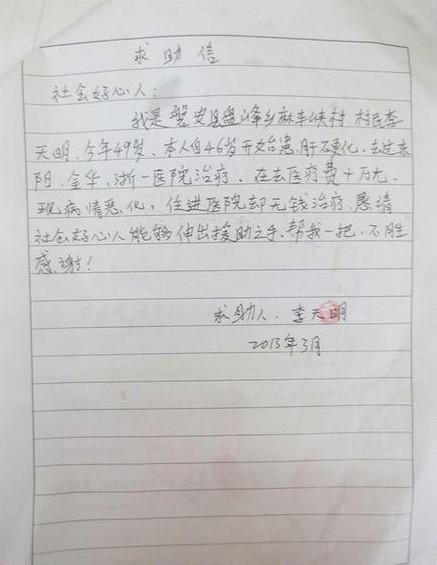 求助信
社会好心人：
我是磐安县盘峰乡麻车峡村，村民李
天明、今年49岁、本人自46岁开始患肝硬化、去过东
阳、金华、浙一医院治疗．花去医疗费十万元．
现病情恶化，住进医院却无钱治疗．恳请
社会好心人能够伸出援助之手、帮我一把、不胜
感谢！
求助人．李天明
2013年3月